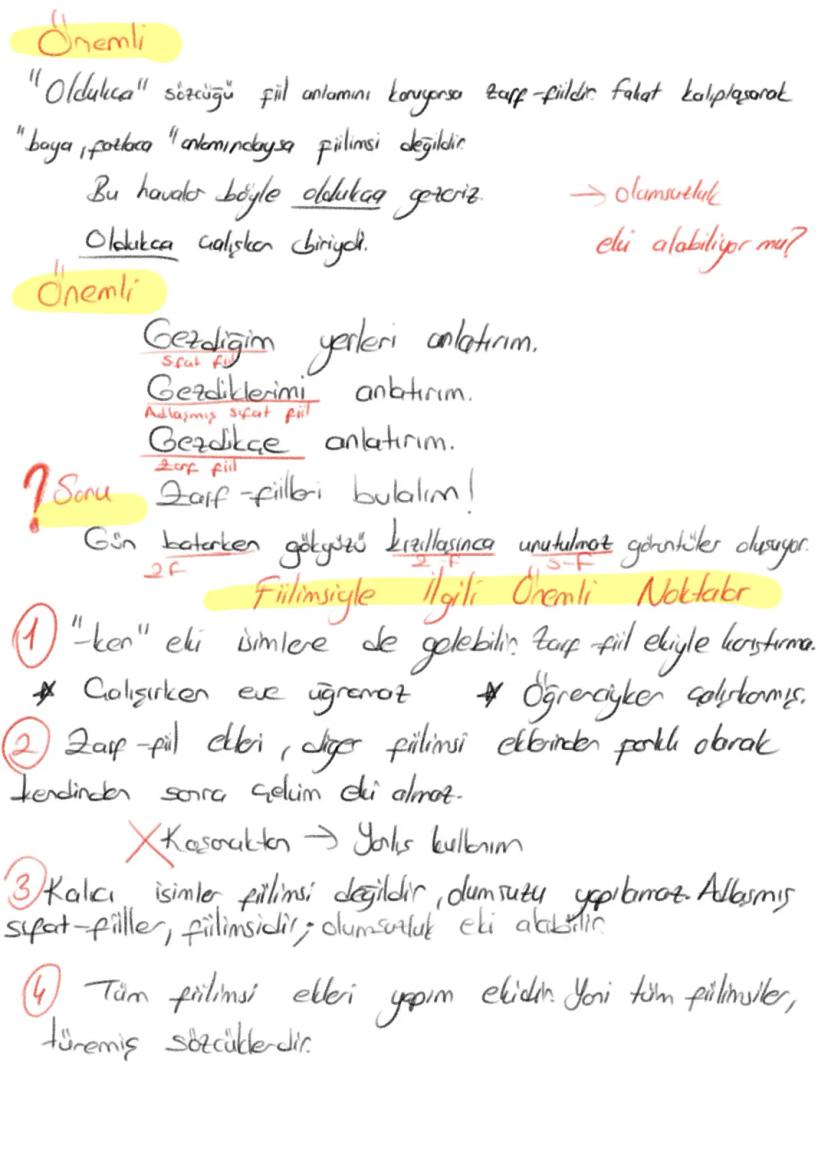 Önemli
"Oldukca" sözcüğü fiil anlamını koruyorsa zarf-fiildir fakat kalıplaşarak
"baya, fazlaca" anlamındaysa fiilimsi değildir
Bu havalar böyle oldukça gezeriz. → olumsuzluk
Oldukca çalışkan biriydi. eki alabiliyor mu?
Önemli
Gezdiğim yerleri anlatırım.
sıfat fiil
Gezdiklerimi anlatırım.
Adlaşmış sıfat fiil
Gezdikçe anlatırım.
zarf fiil
? Soru Zarf-fiilleri bulalım!
Gün batarken gökyüzü kızıllaşınca unutulmaz görüntüler oluşuyor.
ZF Z-F S-F
Fiilimsiyle ilgili Önemli Noktalar
1 "-ken" eki isimlere de gelebilir. Zarf-fiil ekiyle karıştırma.
* Çalışırken eve uğramaz * Öğrenciyken çalışkanmış.
2 Zarf-fiil ekleri, diğer fiilimsi eklerinden farklı olarak
kendinden sonra çekim eki almaz.
X Koşaraktan → Yanlış kullanım
3 Kalıcı isimler fiilimsi değildir, olumsuzu yapılamaz. Adlaşmış
sıfat-fiiller, fiilimsidir; olumsuzluk eki alabilir.
4 Tüm fiilimsi ekleri yapım ekidir. Yani tüm fiilimsiler,
türemiş sözcüklerdir.